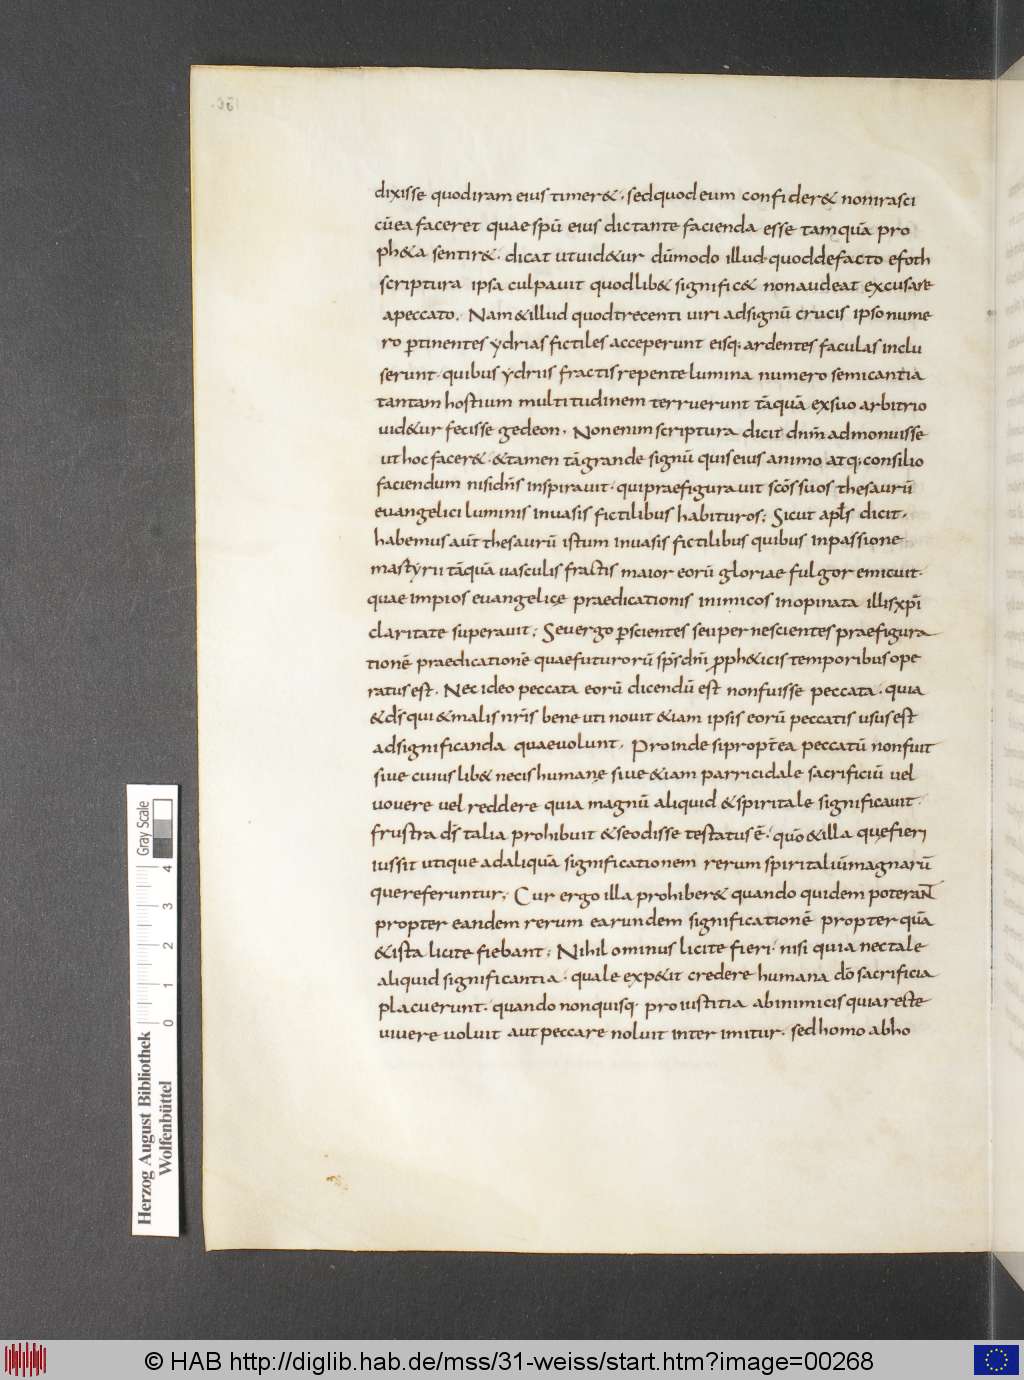 dixisse quodiram eius timer&, sedquodeum confider& nonirasci
cū ea faceret quae spū eius dictante facienda esse tamquā pro
ph&a sentir&· dicat utuid&ur dūmodo illud·quoddefacto efoth
scriptura ipsa culpauit quodlib& signific& nonaudeat excusare
apeccato. Nam&illud quodtrecenti uiri adsignū crucis ipso nume
ro ꝑtinentes ydrias fictiles acceperunt eisq; ardentes faculas inclu
serunt· quibus ydriis fractis repente lumina numero semicantia
tantam hostium multitudinem terruerunt tāquā exsuo arbitrio
uid&ur fecisse gedeon. Nonenim scriptura dicit dnm̄ admonuisse
ut hoc facer&·&tamen tāgrande signū quis eius animo atq; consilio
faciendum nisidn̄s inspirauit· quipraefigurauit scōs suos thesaurū
euangelici luminis inuasis fictilibus habituros; Sicut apl̄s dicit,
habemus aut̄ thesaurū istum inuasis fictilibus quibus inpassione
martyrii tāquā uasculis fractis maior eorū gloriae fulgor emicuit·
quae impios euangelicę praedicationis inimicos inopinata illisxp̄i
claritate superauit; Seuergo ꝑscientes seu per nescientes praefigura
tionē praedicationē quaefuturorū sp̄s dn̄i ꝓph&icis temporibus ope
ratus est. Nec ideo peccata eorū dicendū est nonfuisse peccata· quia
&ds̄ qui &malis nr̄is bene uti nouit &iam ipsis eorū peccatis usus est
adsignificanda quaeuoluit. Proinde sipropt̄ea peccatū nonfuit
siue cuiuslib& necis humanę siue &iam parricidale sacrificiū uel
uouere uel reddere quia magnū aliquid &spiritale significauit·
frustra ds̄ talia prohibuit &seodisse testatus ē· quō &illa quefieri
iussit utique adaliquā significationem rerum spiritaluī magnarū
quereferuntur; Cur ergo illa prohiber& quando quidem poteraN̄
propter eandem rerum earundem significationē propter quā
&ista licite fiebant; Nihil ominus licite fieri· nisi quia nec tale
aliquid significantia· quale exp&it credere humana dō sacrificia
placuerunt· quando nonquisq· pro iustitia abinimicis quiarecte
uiuere uoluit aut peccare noluit inter imitur· sed homo abho
Herzog August Bibliothek
Wolfenbüttel
0 1 2 3 4
Gray Scale
© HAB http://diglib.hab.de/mss/31-weiss/start.htm?image=00268